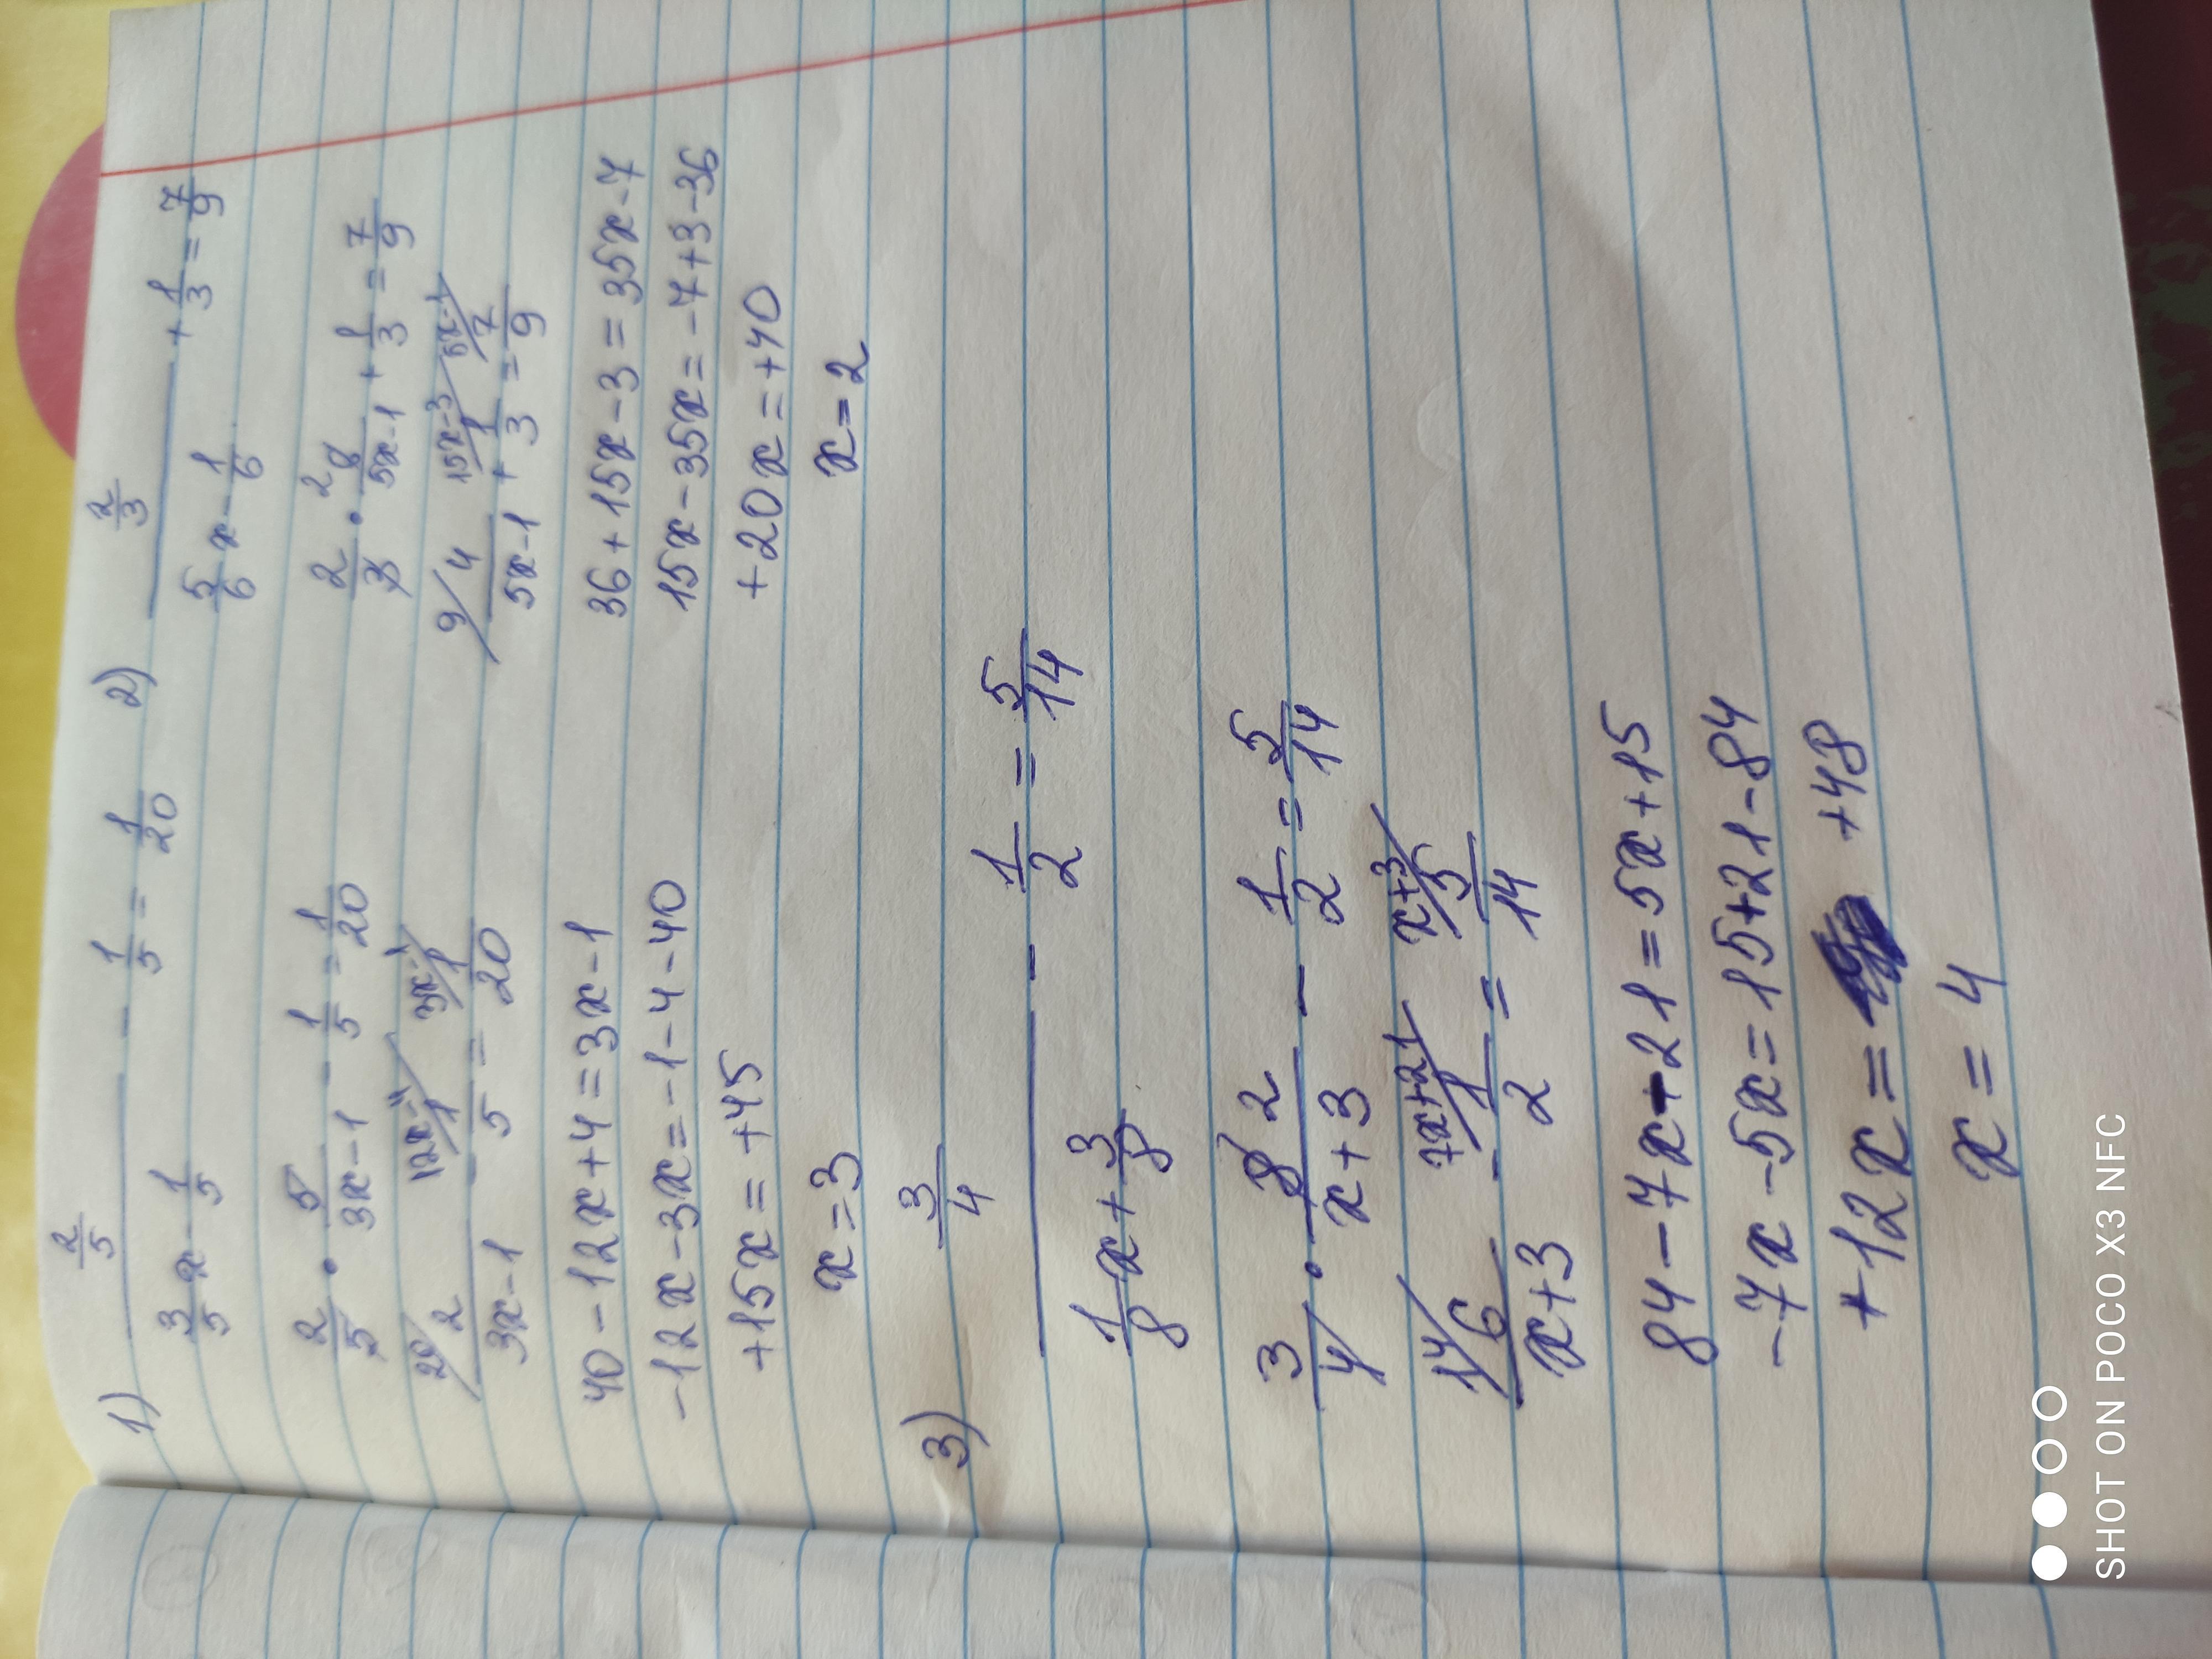 1) 2/5 / (3/5 x - 1/5) - 1/5 = 1/20
2/5 · 5/(3x-1) - 1/5 = 1/20
20/ 2/(3x-1) - 12x-4/ 1/5 = 3x-1/ 1/20
40-12x+4=3x-1
-12x-3x=-1-4-40
+15x=+45
x=3
2) 2/3 / (5/6 x - 1/6) + 1/3 = 7/9
2/3 · 6 2/(5x-1) + 1/3 = 7/9
9/ 4/(5x-1) + 15x-3/ 1/3 = 5x-1/ 7/9
36+15x-3=35x-7
15x-35x=-7+3-36
+20x=+40
x=2
3) 3/4 / (1/8 x + 3/8) - 1/2 = 5/14
3/4 · 8 2/(x+3) - 1/2 = 5/14
14/ 6/(x+3) - 7x+21/ 1/2 = x+3/ 5/14
84-7x-21=5x+15
-7x-5x=15+21-84
+12x= +48
x=4
SHOT ON POCO X3 NFC